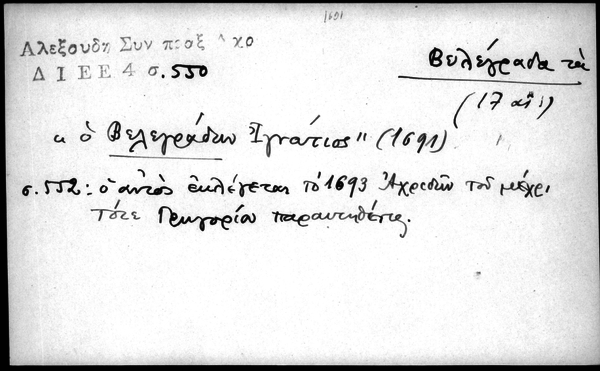 1691
Αλεξουδη Συν π
ΔΙΕΕ 4 σ. 550
Βελέγραδα τὰ
(17 αἰ.)
" ὁ Βελεγράδων Ἰγνάτιος" (1691)
σ. 552: ὁ αὐτὸς ἐκλέγεται τὸ 1693 Ἀχριδῶν τοῦ μέχρι
τότε Γρηγορίου παραιτηθέντος.